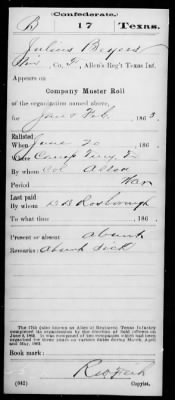 Confederate.
B 17 Texas.
Julius Beyers
Co. F, Allen's Reg't Texas Inf.
Appears on
Company Muster Roll
of the organization named above,
for Jan & Feb, 1863.
Enlisted:
When June 20, 186
Where Camp Terry,
By whom Col Allen
Period War
Last paid:
By whom
To what time , 186 .
Present or absent absent
Remarks: Absent sick
The 17th (also known as Allen's) Regiment Texas Infantry
completed its organization by the election of field officers on
been organized for three years on various dates during March, April
and May, 1862.
Book mark:
(642) Copyist.